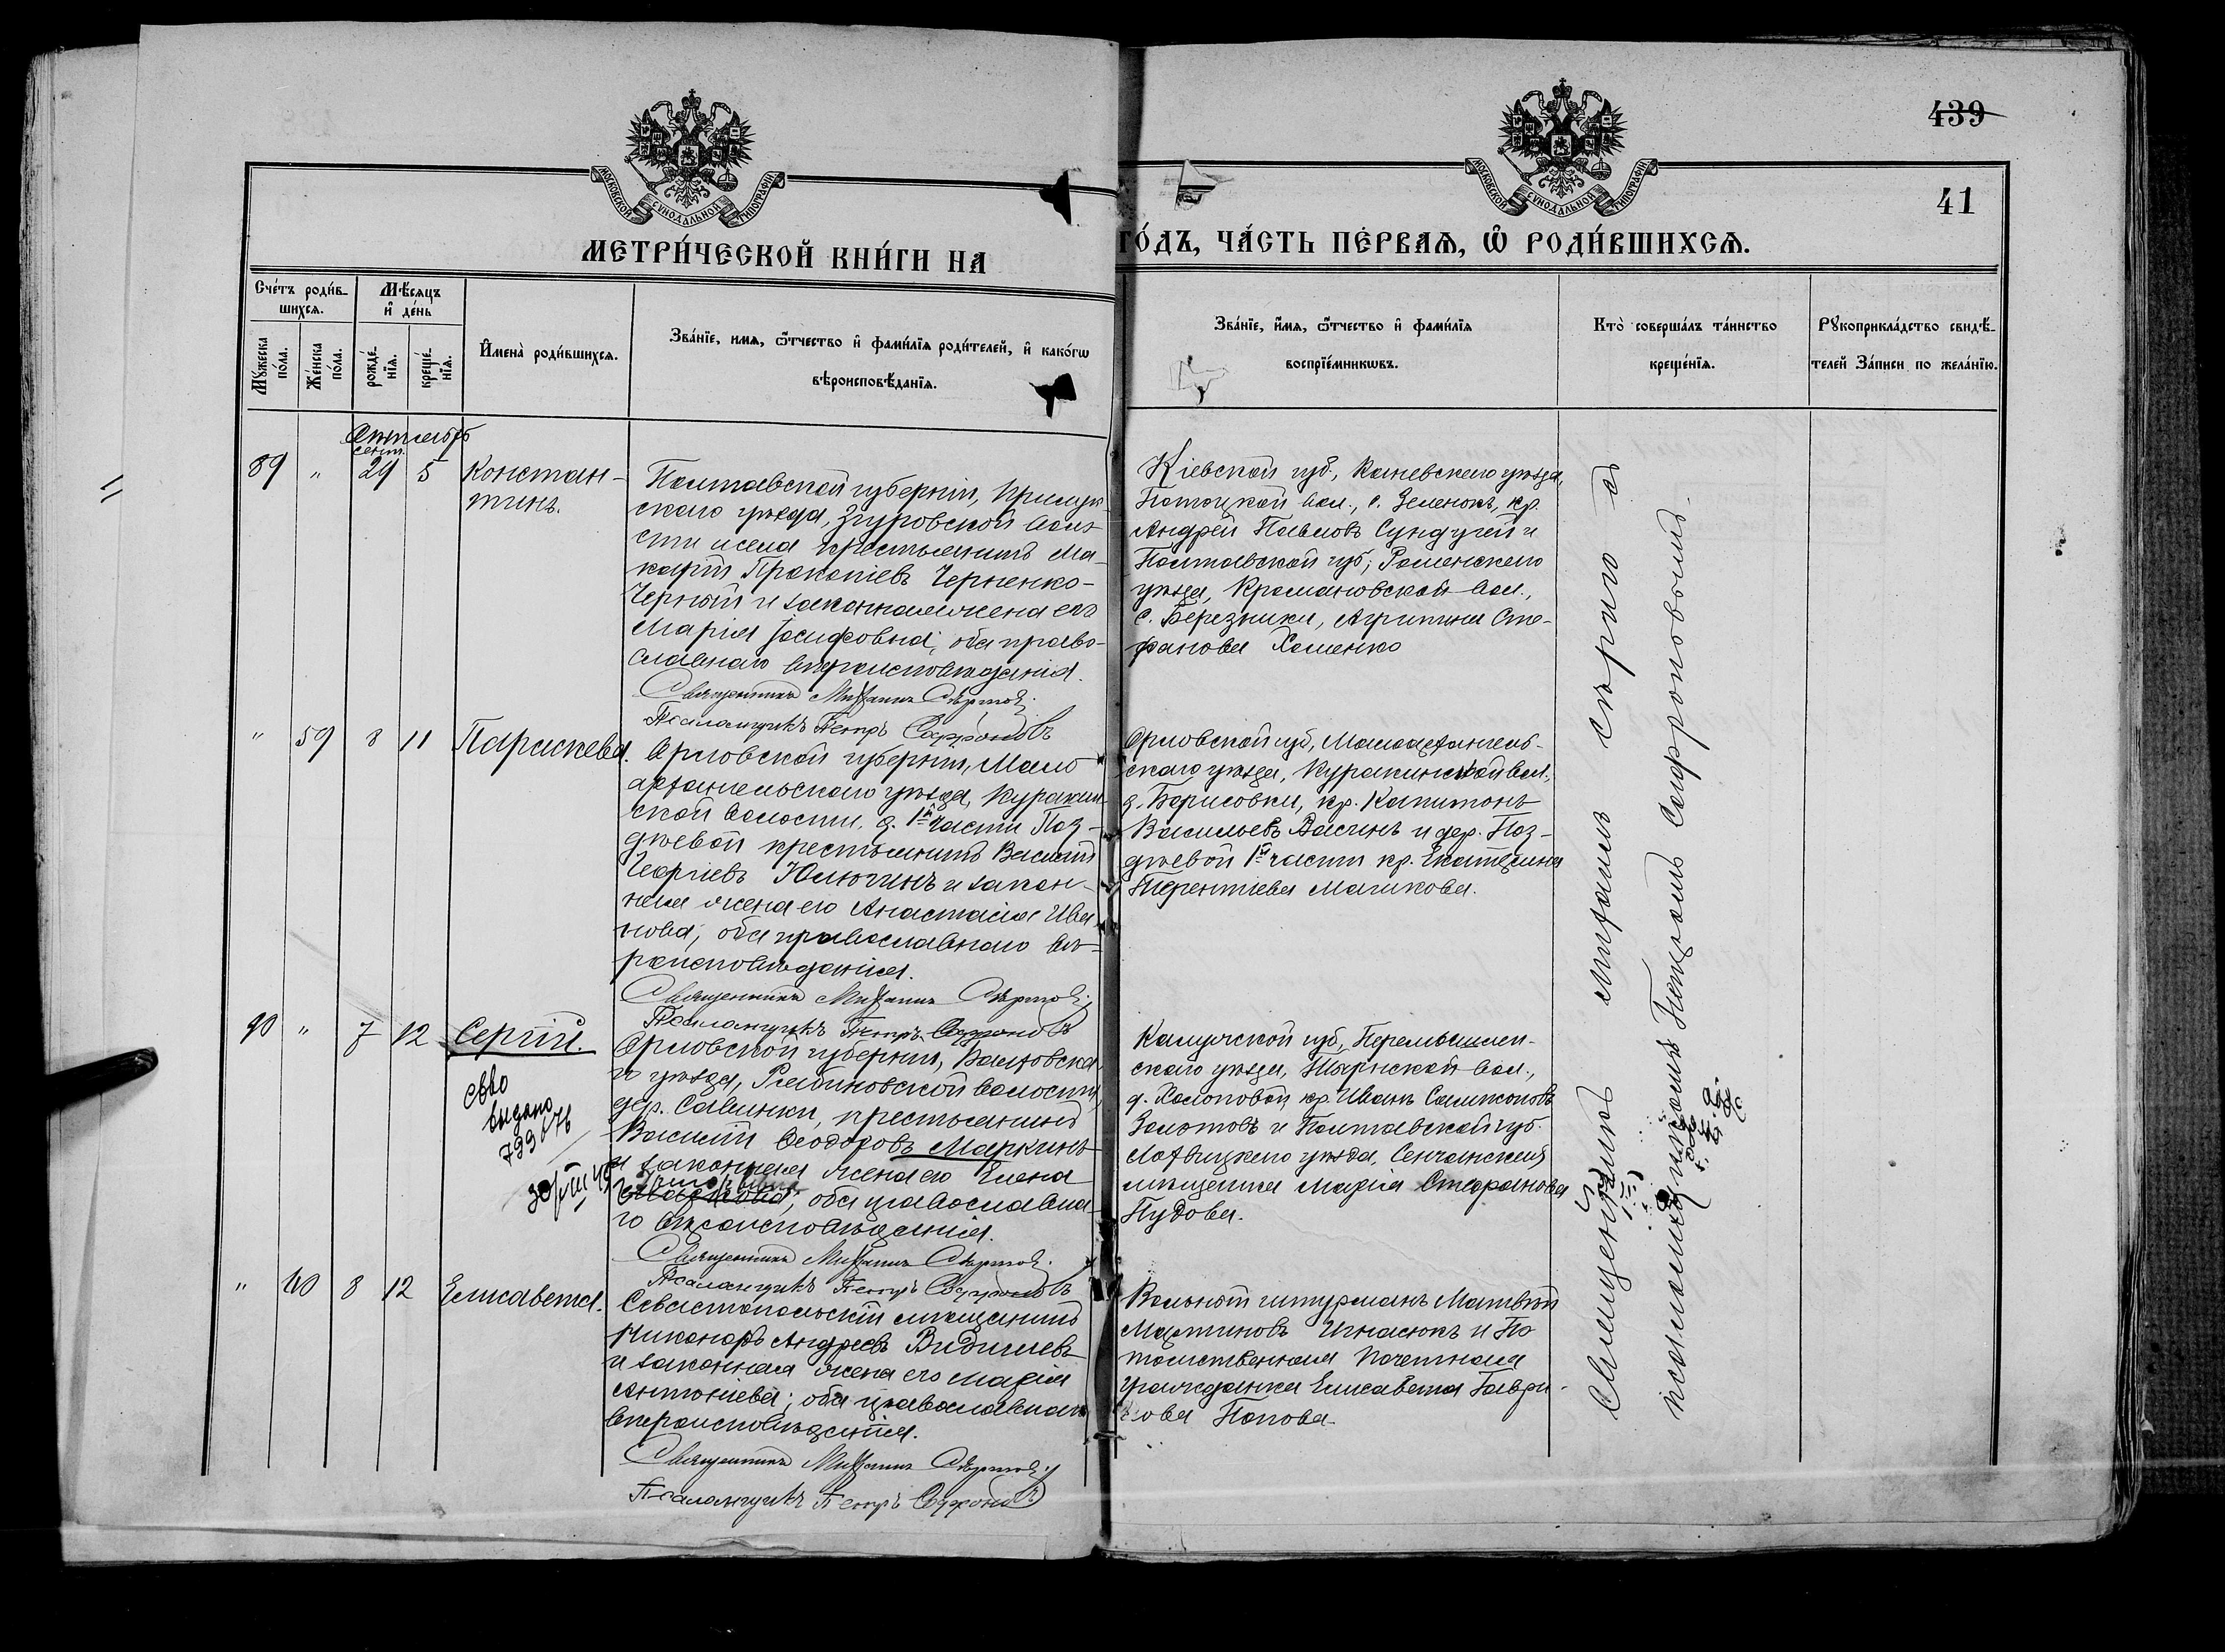 439
41
МОСКОВСКОЙ СѴНОДАЛЬНОЙ ТИПОГРАФІИ
МОСКОВСКОЙ СѴНОДАЛЬНОЙ ТИПОГРАФІИ
МЕТРИ́ЧЕСКОЙ КНИ́ГИ НА
ГО́ДЪ, ЧА́СТЬ ПЕ́РВАѦ, Ѽ РОДИ́ВШИХСѦ.
Сче́тъ роди́в-
шихся.
Мꙋ́жеска по́ла.
Же́нска по́ла.
Мѣ́сяцъ
и҆ де́нь
рожде́-
нїя.
креще́-
нїя.
И҆мена̀ роди́вшихся.
Зва́нїе, имя, ѻ҆́тчество и҆ фами́лїя роди́телей, и҆ како́гѡ
вѣроисповѣ́данїя.
Зва́нїе, и҆́мя, ѻ҆́тчество и҆ фами́лїя
воспрїе́мникѡвъ.
Кто̀ соверша́лъ та́инство
креще́нїя.
Рꙋкоприкла́дство свидѣ́-
телей За́писи по жела́нїю.
Октябрь
сент.
89 " 29 5 Констан-
тинъ.
Полтавской губерніи, Прилук-
скаго уѣзда, Згуровской воло-
сти и села крестьянинъ Ма-
карій Прокопіевъ Черненко-
Черный и законная жена его
Марія Іосифовна; оба право-
славнаго вѣроисповѣданія.
Священникъ Митрофанъ
Псаломщикъ Петръ Софроновъ
Кіевской губ., Каневскаго уѣзда,
Потоцкой вол., с. Зеленокъ, кр.
Андрей Павловъ Сундугей и
Полтавской губ., Роменскаго
уѣзда, вол.,
с. Березняки, Агрипина Сте-
фанова Хоменко
" 59 8 11 Параскева.
Орловской губерніи, Мало
архангельскаго уѣзда, Куракин-
ской волости, д. 1й части Поз-
дѣевой крестьянинъ Василій
Георгіевъ Юлюгинъ и закон-
ная жена его Анастасія Ива-
нова; оба православнаго вѣ-
роисповѣданія.
Священникъ
Псаломщикъ Петръ Софроновъ
Орловской губ., Малоархангель-
скаго уѣзда, Куракинской вол.,
д. Борисовки, кр. Капитонъ
Васильевъ и дер. Поз-
дѣевой 1й части кр. Екатерина
Терентіева Машкова.
90 " 7 12 Сергій.
св-во
выдано
30/VIII
Орловской губерніи, Волховска-
го уѣзда, Рябиновской волости,
дер. Савинки, крестьянинъ
Василій Ѳеодоровъ Маркинъ
и законная жена его Елена
оба православна-
го вѣроисповѣданія.
Священникъ
Псаломщикъ Петръ Софроновъ
Калужской губ., Перемышлен-
скаго уѣзда, вол.,
д. Холоповой, кр. Иванъ
Золотовъ и Полтавской губ.
Лохвицкаго уѣзда, Сенчанская
мѣщанка Марія Стефанова
Пудова.
" 60 8 12 Елисавета.
Севастопольскій мѣщанинъ
Никаноръ Андреевъ
и законная жена его Марія
Антоніева; оба православнаго
вѣроисповѣданія.
Священникъ
Псаломщикъ Петръ Софроновъ
Вольный штурманъ Матвѣй
Мартиновъ Игнасюкъ и По-
томственная почетная
гражданка Елисавета Гаври-
лова Попова.
Священникъ
псаломщикомъ Петромъ Софроновымъ.